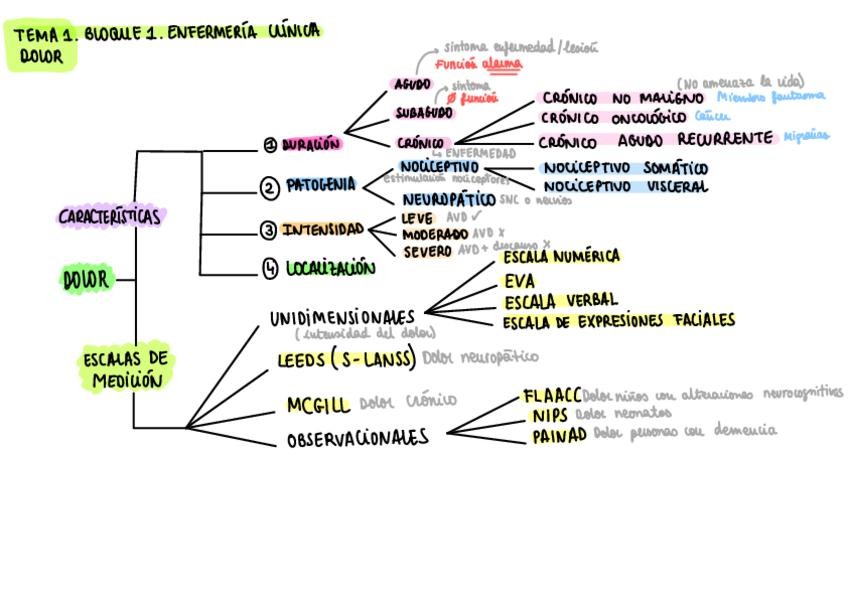 TEMA 1. BLOQUE 1. ENFERMERÍA CLÍNICA
DOLOR
síntoma enfermedad/lesión
Función alarma
AGUDO
síntoma
Ø función
SUBAGUDO
(No amenaza la vida)
CRÓNICO NO MALIGNO Miembro fantasma
CRÓNICO ONCOLÓGICO Cáncer
① DURACIÓN
CRÓNICO
CRÓNICO AGUDO RECURRENTE Migrañas
↳ ENFERMEDAD
② PATOGENIA
NOCICEPTIVO
estimulación nociceptores
NOCICEPTIVO SOMÁTICO
NOCICEPTIVO VISCERAL
NEUROPÁTICO SNC o nervios
CARACTERÍSTICAS
③ INTENSIDAD
LEVE AVD ✓
MODERADO AVD X
SEVERO AVD + descanso X
④ LOCALIZACIÓN
DOLOR
ESCALAS DE
MEDICIÓN
UNIDIMENSIONALES
(intensidad del dolor)
ESCALA NUMÉRICA
EVA
ESCALA VERBAL
ESCALA DE EXPRESIONES FACIALES
LEEDS (S-LANSS) Dolor neuropático
MCGILL Dolor crónico
OBSERVACIONALES
FLAACC Dolor niños con alteraciones neurocognitivas
NIPS Dolor neonatos
PAINAD Dolor personas con demencia